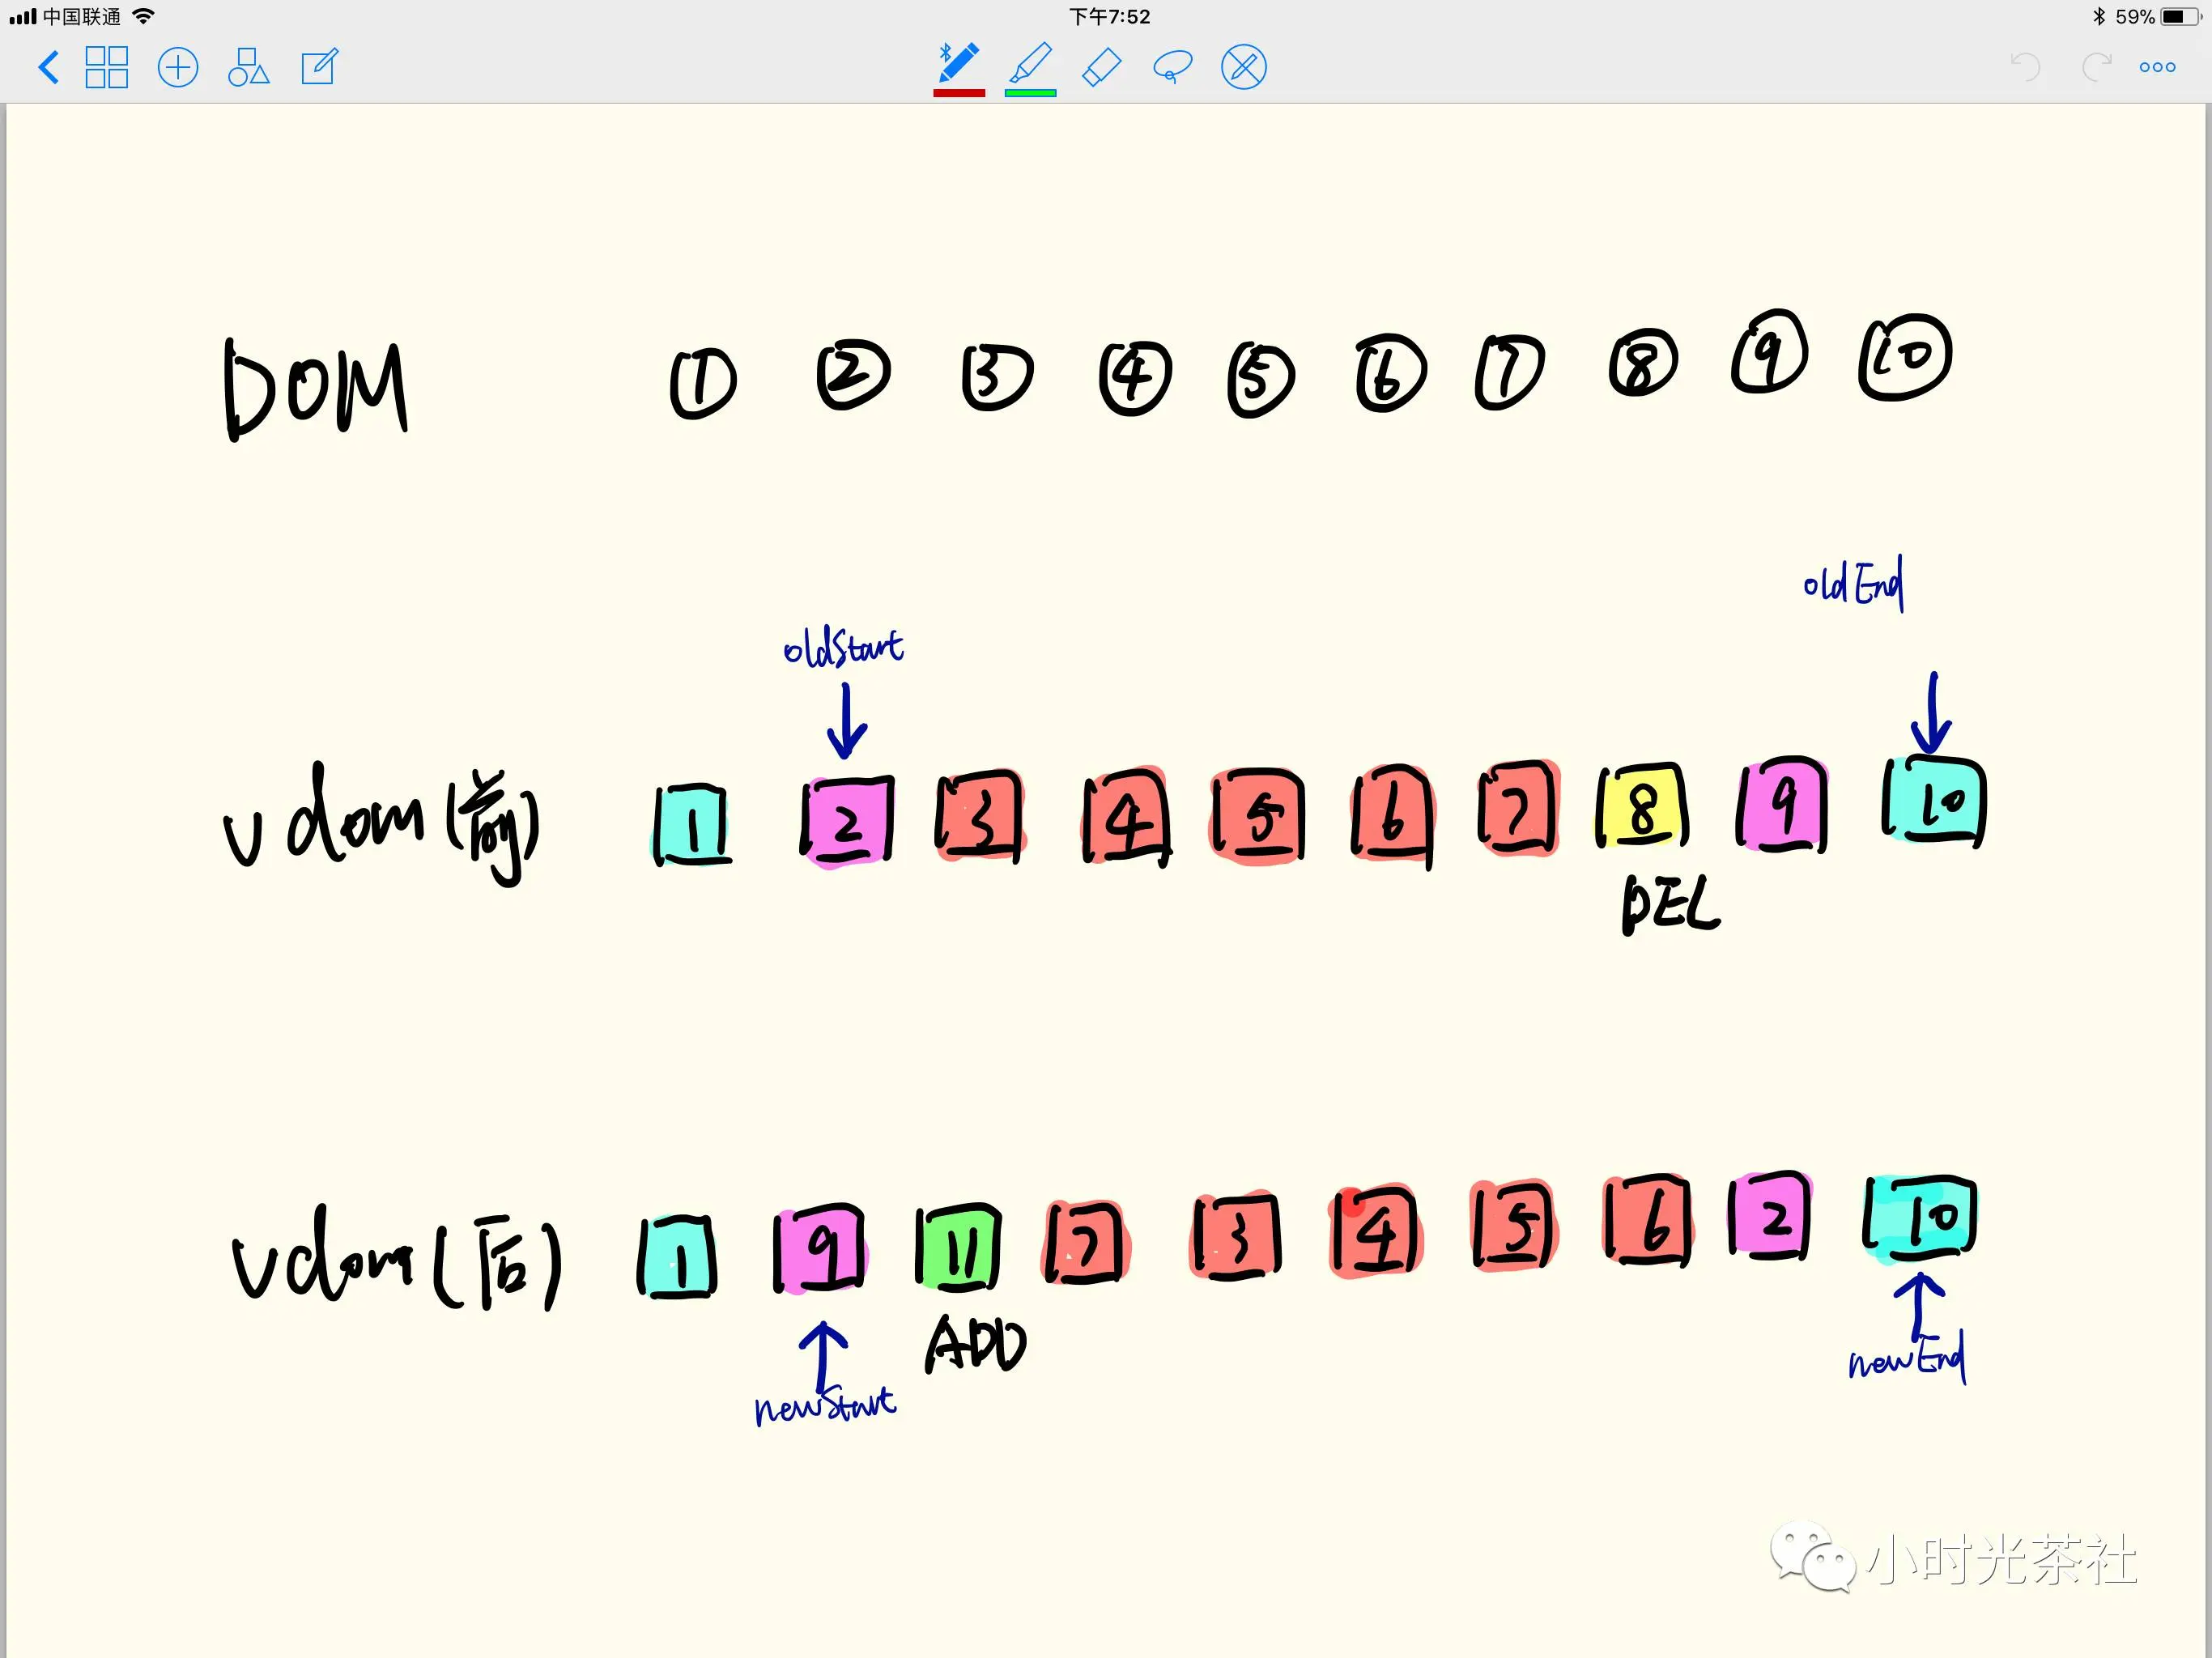 中国联通 下午7:52 59%
DOM 1 2 3 4 5 6 7 8 9 10
oldEnd
oldStart
vdom(前) 1 2 3 4 5 6 7 8 9 10
DEL
vdom(后) 1 9 11 7 3 4 5 6 2 10
ADD
newEnd
newStart
小时光茶社